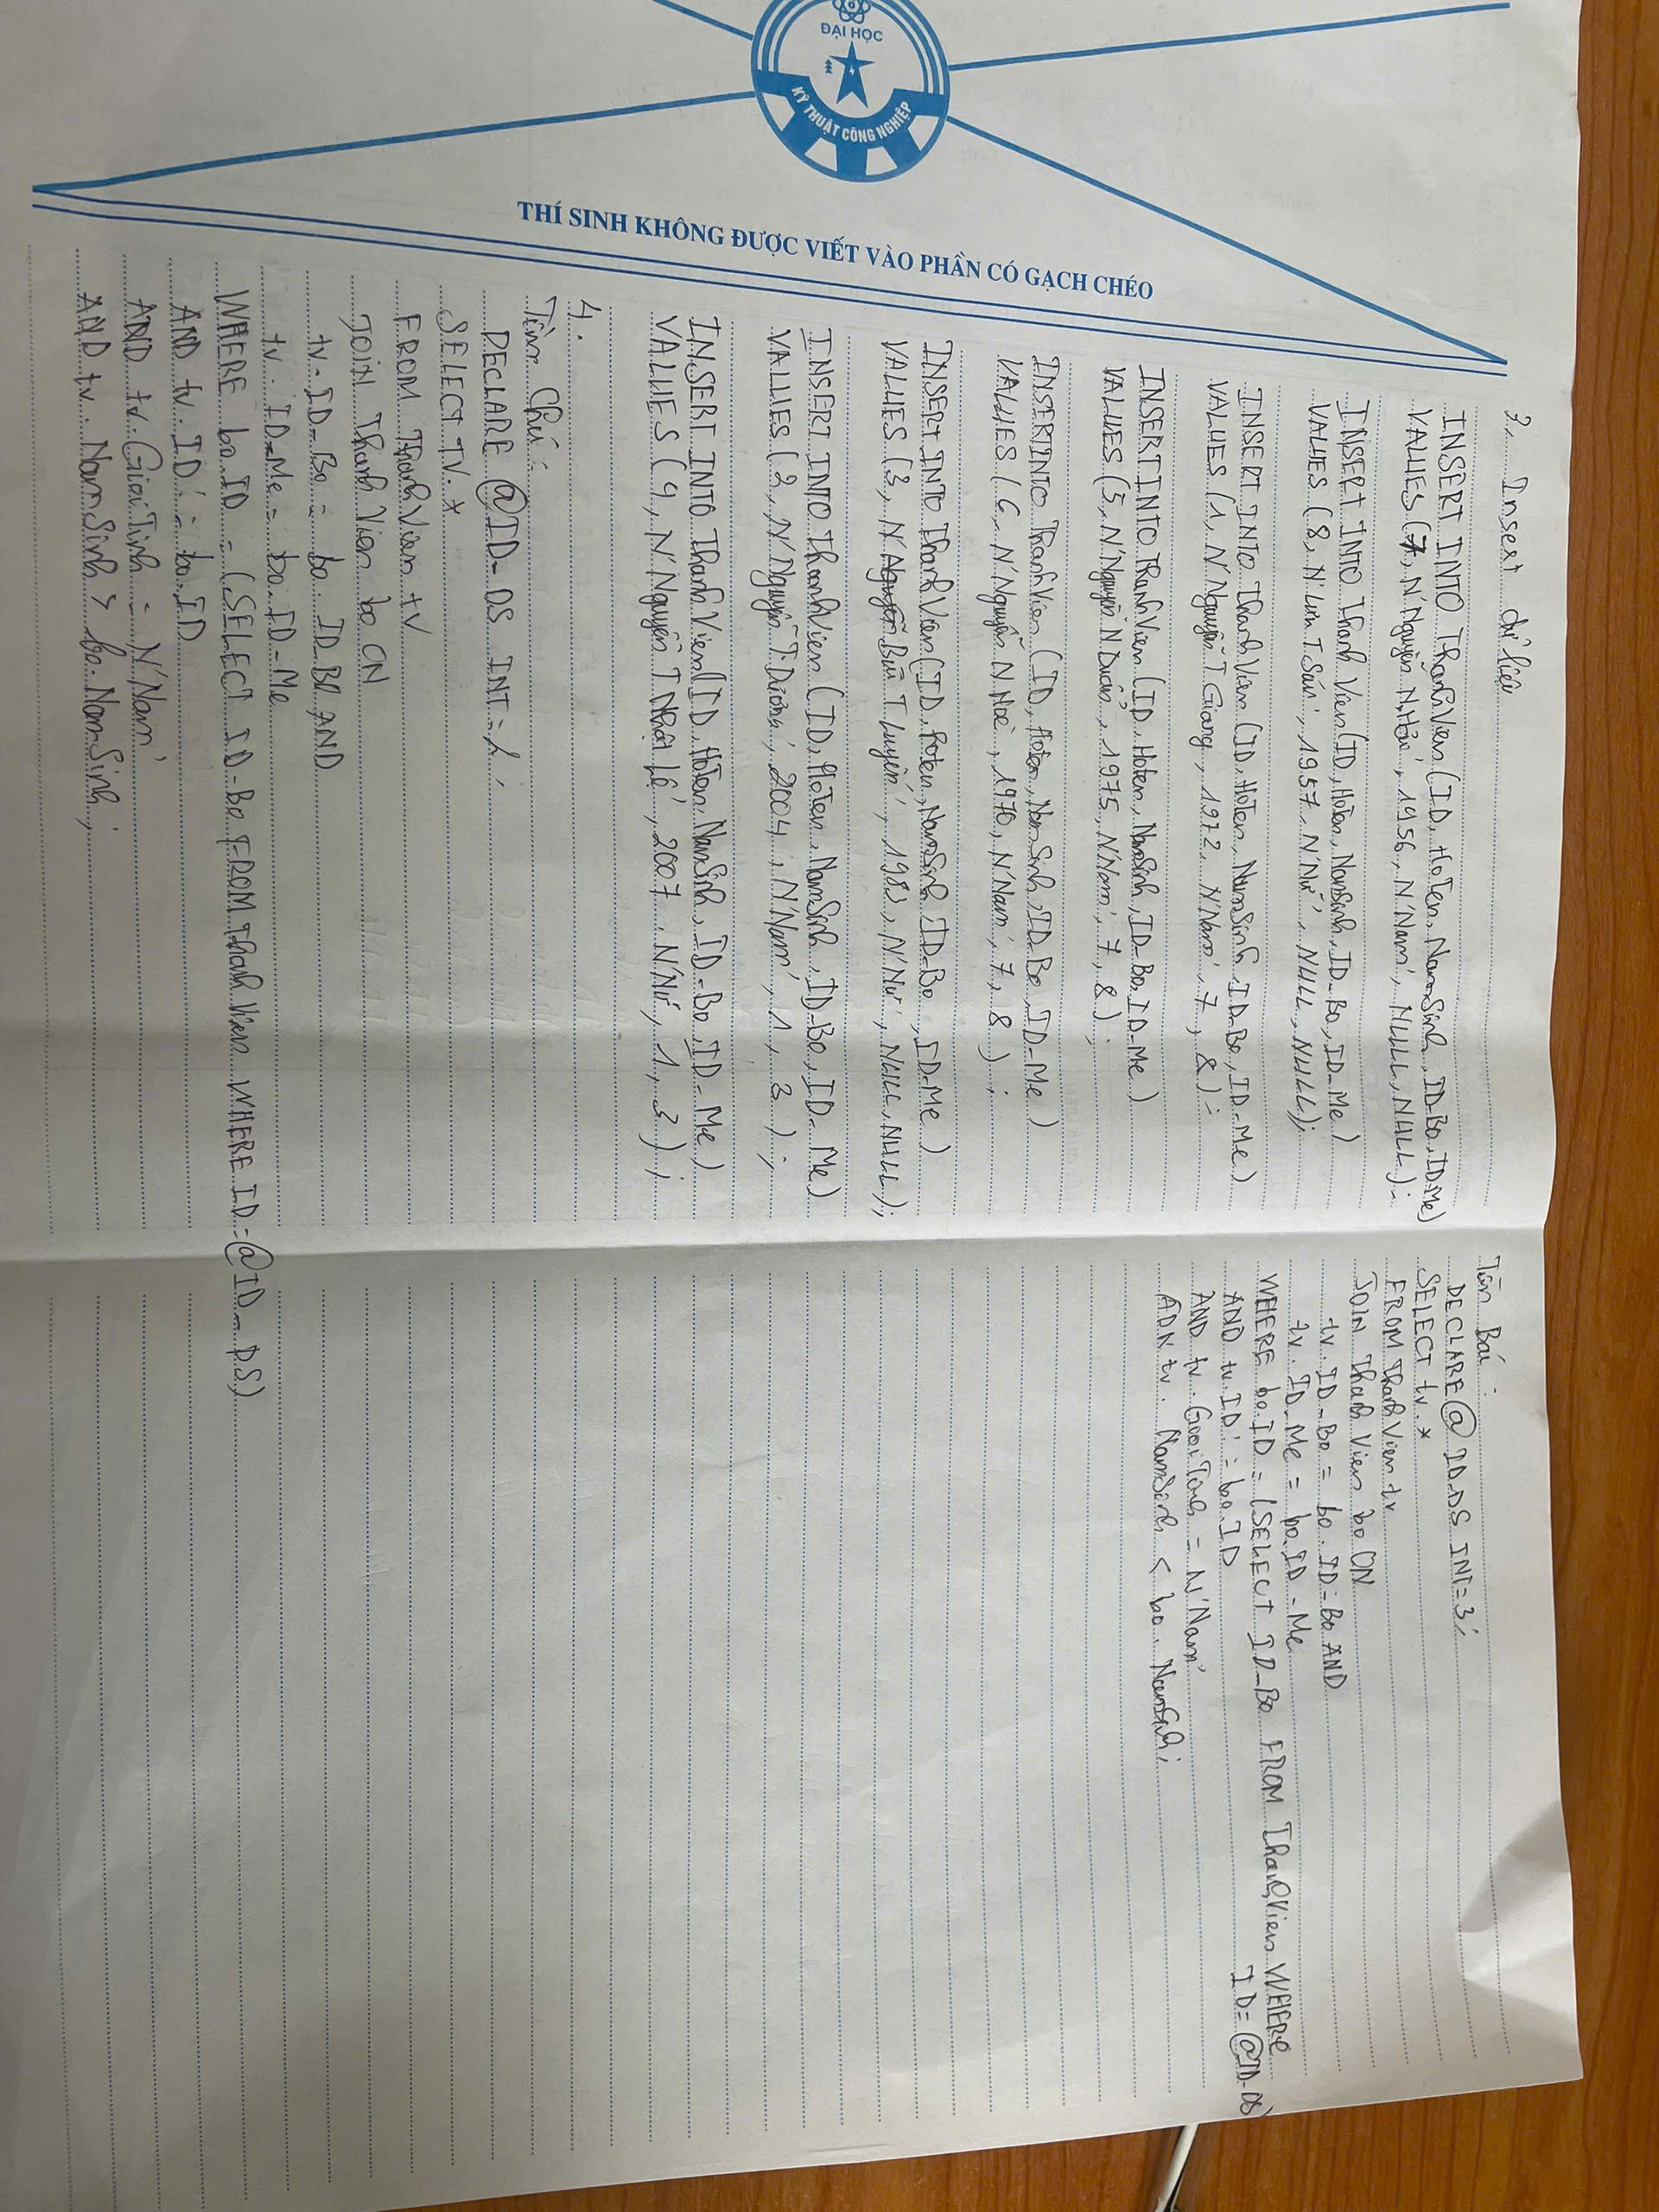 ĐẠI HỌC
KỸ THUẬT CÔNG NGHIỆP
THÍ SINH KHÔNG ĐƯỢC VIẾT VÀO PHẦN CÓ GẠCH CHÉO
3. Insert dữ liệu
INSERT INTO ThanhVien (ID, HoTen, NamSinh, ID_Bo, ID_Me)
VALUES (7, N'Nguyễn N.Hải', 1956, N'Nam', NULL, NULL);
INSERT INTO ThanhVien (ID, HoTen, NamSinh, ID_Bo, ID_Me)
VALUES (8, N'Lưu T.Sáu', 1957, N'Nữ', NULL, NULL);
INSERT INTO ThanhVien (ID, HoTen, NamSinh, ID_Bo, ID_Me)
VALUES (1, N'Nguyễn T Giang, 1972, N'Nam', 7, 8);
INSERT INTO ThanhVien (ID, HoTen, NamSinh, ID_Bo, ID_Me)
VALUES (5, N'Nguyễn N Duẩn', 1975, N'Nam', 7, 8);
INSERT INTO ThanhVien (ID, HoTen, NamSinh, ID_Bo, ID_Me)
VALUES (6, N'Nguyễn N.Hoè', 1970, N'Nam', 7, 8);
INSERT INTO ThanhVien (ID, HoTen, NamSinh, ID_Bo, ID_Me)
VALUES (3, N'Bùi T Luyện', N'Nữ', NULL, NULL);
INSERT INTO ThanhVien (ID, HoTen, NamSinh, ID_Bo, ID_Me)
VALUES (2, N'Nguyễn T.Dương', 2004, N'Nam', 1, 3);
INSERT INTO ThanhVien (ID, HoTen, NamSinh, ID_Bo, ID_Me)
VALUES (4, N'Nguyễn T Nhật Lệ', 2007, N'Nữ', 1, 3);
4.
Tìm Chú:
DECLARE @ID_DS INT = 2;
SELECT TV.*
FROM ThanhVien tv
JOIN ThanhVien bo ON
tv.ID_Bo = bo.ID_Bo AND
tv.ID_Me = bo.ID_Me
WHERE bo.ID = (SELECT ID_Bo FROM ThanhVien WHERE ID = @ID_DS)
AND tv.ID != bo.ID
AND tv.GioiTinh = N'Nam'
AND tv.NamSinh > bo.NamSinh;
Tìm Bác:
DECLARE @ID_DS INT = 3;
SELECT tv.*
FROM ThanhVien tv
JOIN ThanhVien bo ON
tv.ID_Bo = bo.ID_Bo AND
tv.ID_Me = bo.ID_Me
WHERE bo.ID = (SELECT ID_Bo FROM ThanhVien WHERE
ID = @ID_DS)
AND tv.ID != bo.ID
AND tv.GioiTinh = N'Nam'
ADN tv.NamSinh < bo.NamSinh;